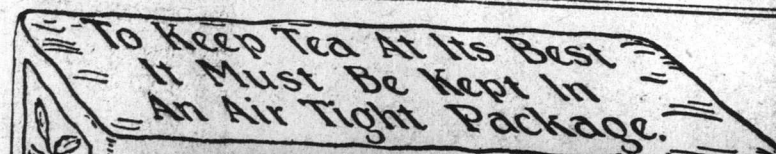 To Keep Tea At Its Best
It Must Be Kept In
An Air Tight Package.